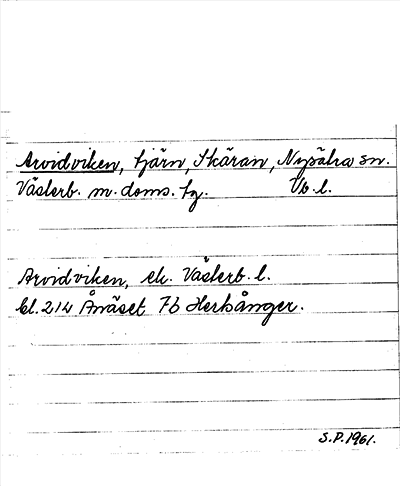 Arvidviken, tjärn, Skäran, Nysätra sn.
Västerb. m. doms. tg. Vb. l.
Arvidviken, ek. Västerb. l.
bl. 214 Ånäset 7b Herkånger.
S.P. 1961.